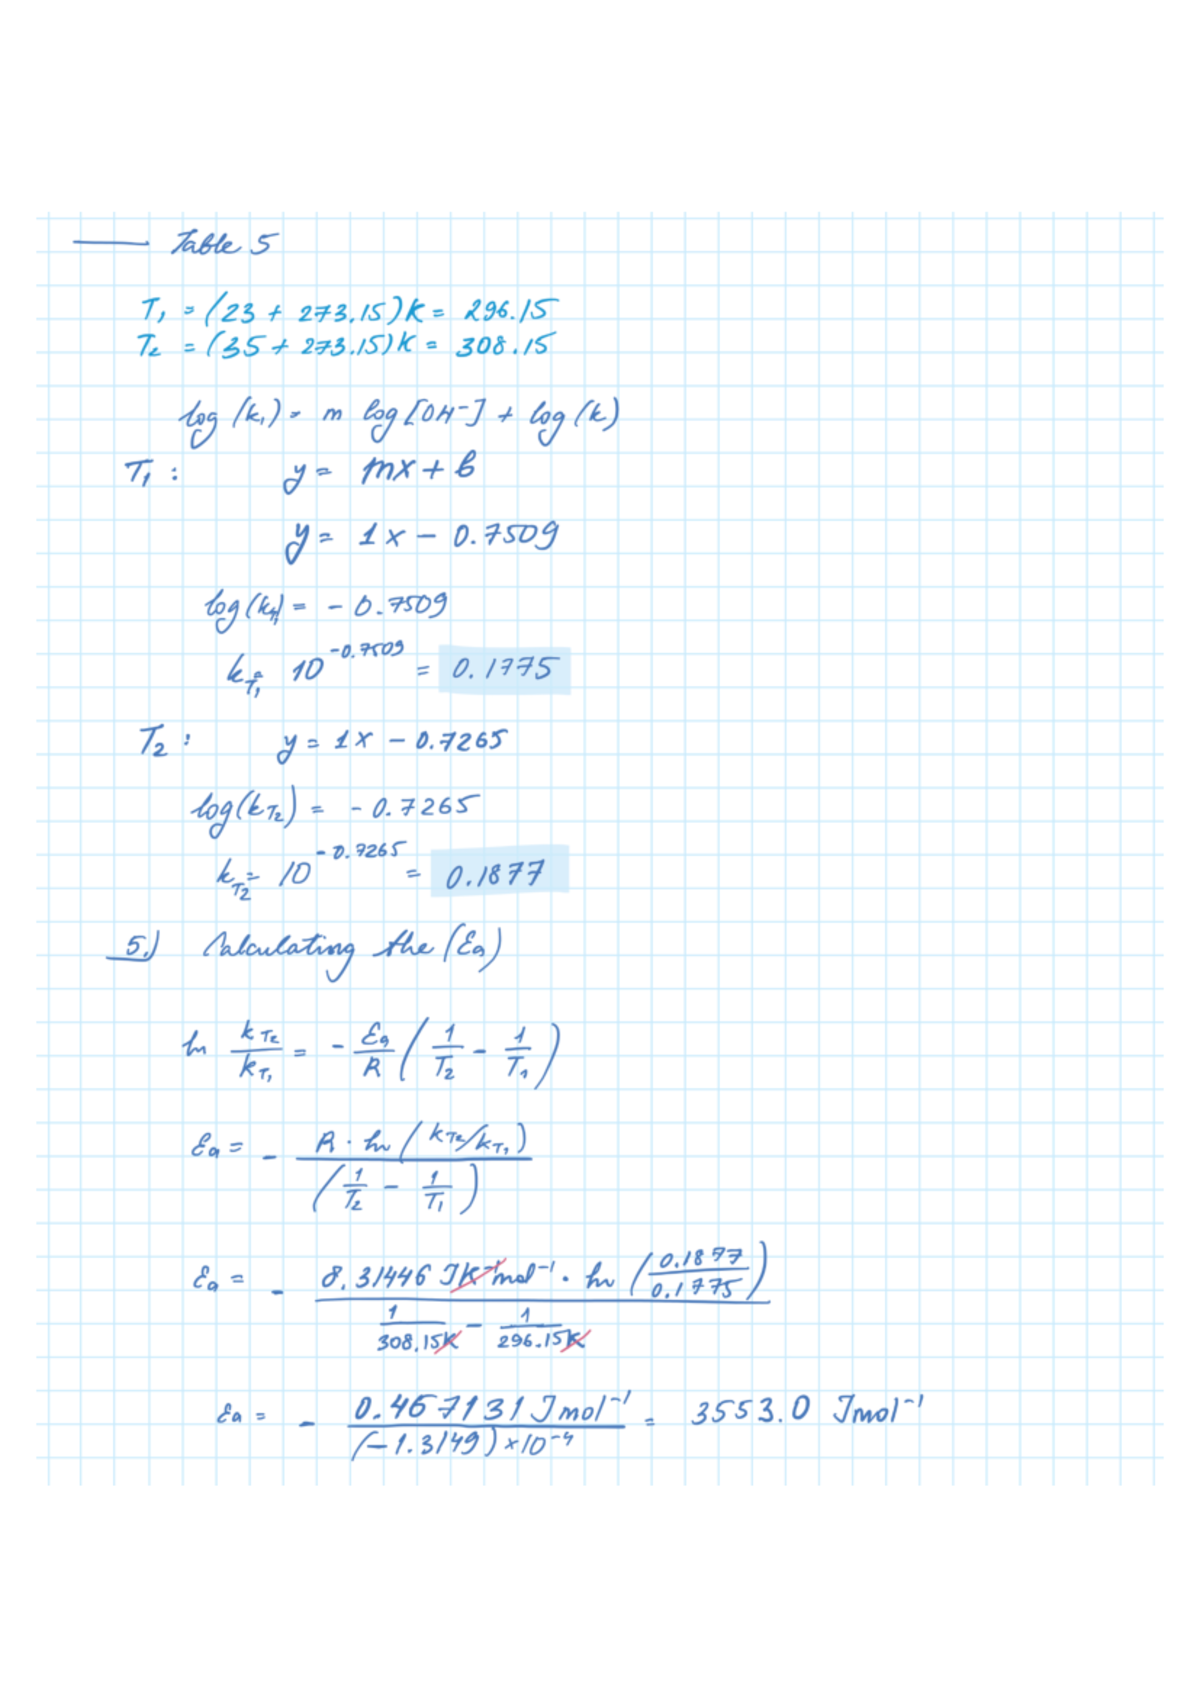 Table 5
T₁ = (23 + 273.15)K = 296.15
T₂ = (35 + 273.15)K = 308.15
log (k₁) = m log [OH⁻] + log (k)
T₁ : y = mx + b
y = 1x − 0.7509
log (k_T₁) = − 0.7509
k_T₁ = 10^−0.7509 = 0.1775
T₂ : y = 1x − 0.7265
log(k_T₂) = − 0.7265
k_T₂ = 10^−0.7265 = 0.1877
5.) Calculating the (Ea)
ln k_T₂/k_T₁ = − Ea/R (1/T₂ − 1/T₁)
Ea = − R · ln (k_T₂/k_T₁) / (1/T₂ − 1/T₁)
Ea = − 8.31446 JK⁻¹mol⁻¹ · ln (0.1877/0.1775) / 1/308.15K − 1/296.15K
Ea = − 0.467131 Jmol⁻¹ / (−1.3149) × 10⁻⁴ = 3553.0 Jmol⁻¹